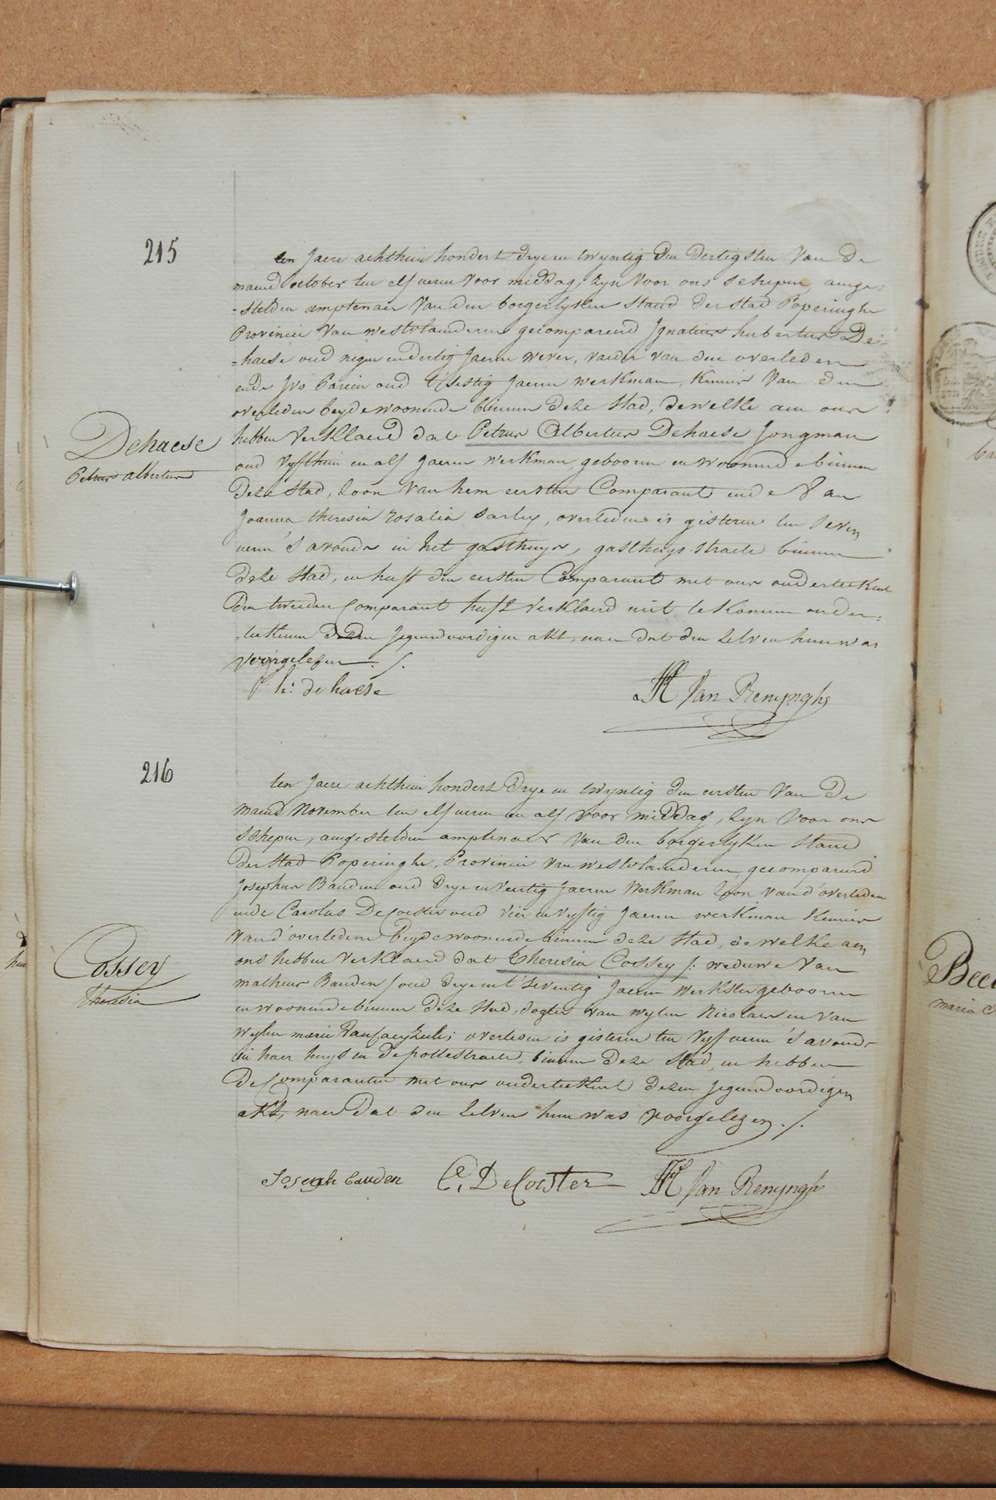 215
ten Jaere achthien hondert drye en twyntig den dertigsten van de
maend october ten elf ueren voor middag, zyn voor ons schepen, ange-
-stelden amptenaer van den borgerlyken stand der stad Poperinghe
Provincie van westvlaanderen gecompareerd Ignatius hubertus De-
-haese oud negen en dertig Jaeren wever, vader van den overleden
ende Ivo Parein oud t'sestig Jaeren werkman, kennis van den
overleden beyde woonende binnen deze stad, dewelke aen ons
Dehaese
Petrus albertus
hebben verklaerd dat Petrus Albertus Dehaese Jongman
oud vyfthien en alf Jaeren werkman geboren en woonende binnen
deze stad, zoon van hem eersten Comparant ende van
Joanna theresia Rosalia, overleden is gisteren ten seven
ueren 's avonds in het gasthuys, gasthuys straete binnen
deze stad, en heeft den eersten Comparant met ons onderteekent
den tweeden Comparant heeft verklaerd niet te konnen onder-
-teekenen dezen jegenwoordigen akt, naer dat den zelven hun was
voorgelezen ./.
h: de haese
Van Renynghe
216
ten Jaere achthien hondert drye en twyntig den eersten van de
maend November ten elf ueren en alf voor middag, zyn voor ons
schepen, angestelden amptenaer van den borgerlyken stand
der stad Poperinghe, Provincie van westvlaanderen, gecompareerd
Josephus Bauden oud drye en veertig Jaeren werkman zoon van d'overleden
ende Carolus Decoester oud vier en vyftig Jaeren werkman kennis
van d'overledene beyde woonende binnen deze stad, dewelke aen
Cossey
theresia
ons hebben verklaerd dat Theresia Cossey ./. weduwe van
matheus Bauden / oud drye en t'seventig Jaeren werkster geboren
en woonende binnen deze stad, dogter van wylen Nicolaus en van
wylen marie, overleden is gisteren ten vyf ueren 's avonds
in haer huys in de pottestraete, binnen deze stad, en hebben
de Comparanten met ons onderteekent dezen jegenwoordigen
akt, naer dat den zelven hun was voorgelezen ./.
Joseph bauden C. DeCoester Van Renynghe
Bee
maria C